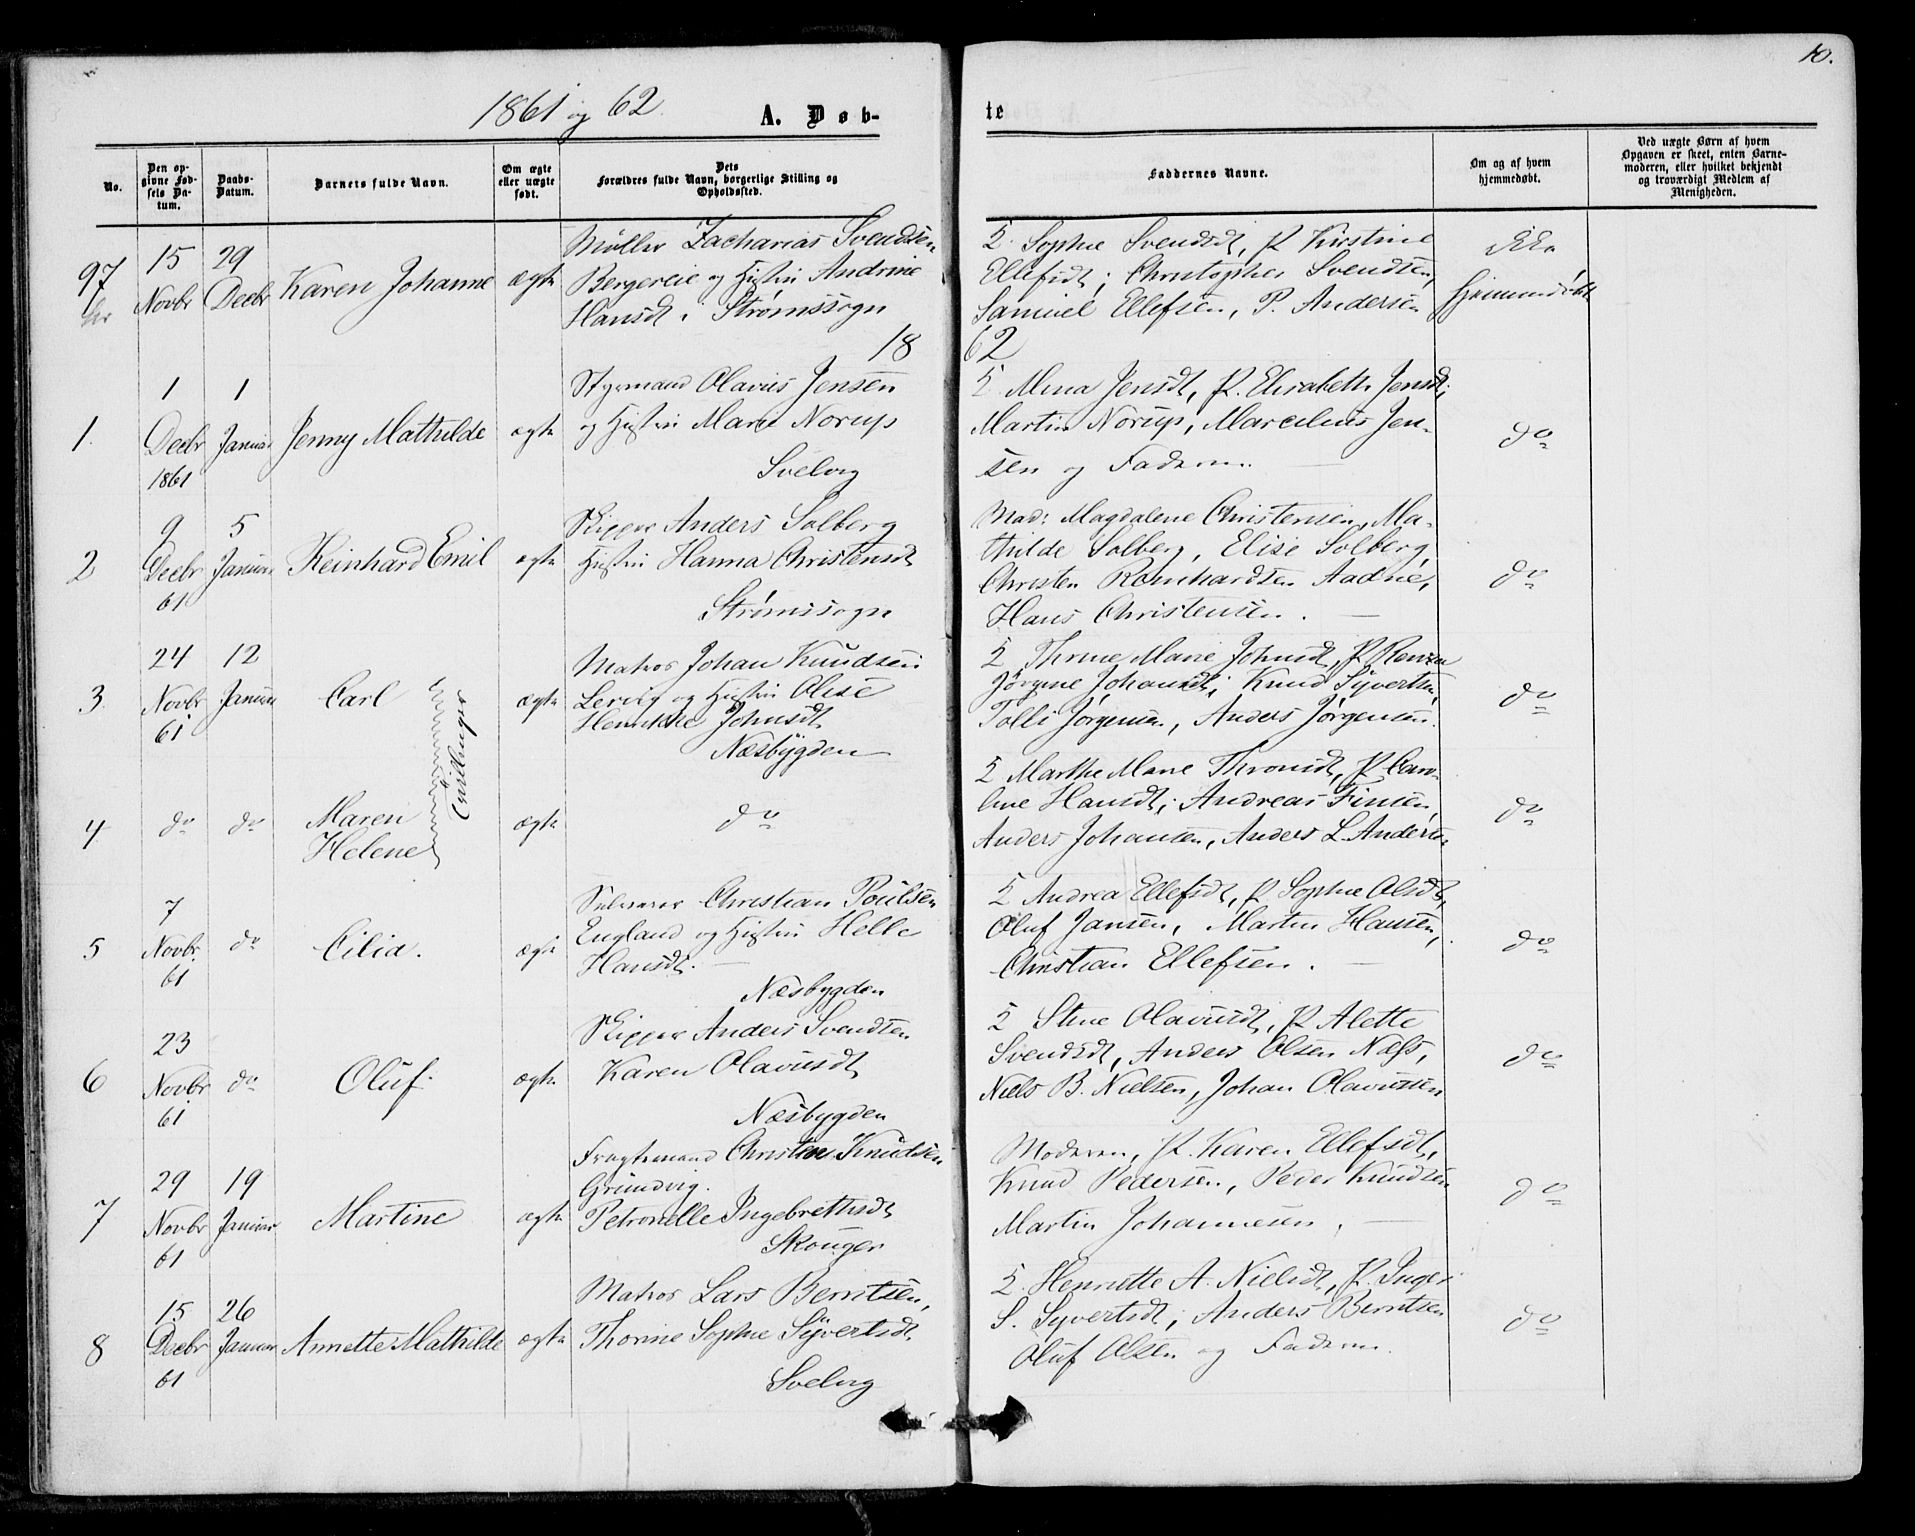 10.
1861 og 62
A. Døb-
te
No.
Den op-
givne Fød-
sels Da-
tum.
Daabs-
Datum.
Barnets fulde Navn.
Om ægte
eller uægte
født.
Dets
Forældres fulde Navn, borgerlige Stilling og
Opholdssted.
Faddernes Navne.
Om og af hvem
hjemmedøbt.
Ved uægte Børn af hvem
Opgaven er skeet, enten Barne-
moderen, eller hvilket bekjendt
og troværdigt Medlem af
Menigheden.
97
15
Novbr
29
Decbr
Karen Johanne
ægte
Møller Zacharias Svendsen
Bergereie og Hustru Andrine
Hansdt i Strømssogn
Sophie Svendsdt, P. Kirstine
Ellefsdt; Christopher Svendsen,
Samuel Ellefsen, P. Andersen
Ikke
hjemmedøbt
18
62
1.
1
Decbr
1861
1
Januar
Jenny Mathilde
ægte
Styrmand Olavus Jensen
og Hustru Maren Norup
Svelvig
Mina Jensdt, P. Elisabeth Jensdt;
Martin Norup, Marcelius Jen-
sen og Faderen.
do
2
9
Decbr
61
5
Januar
Reinhard Emil
ægte
Skipper Anders Solberg
Hustru Hanna Christensdt
Strømssogn
Mad: Magdalene Christensen, Ma-
thilde Solberg, Elise Solberg,
Christen Reinhardsen Aadne,
Hans Christensen.
do
3
24
Novbr
61
12
Januar
Carl
Tvillinger
ægte
Matros Johan Knudsen
Lervig og Hustru Olise
Henrikke Johnsdt
Næsbygden
Thrine Marie Johnsdt, P.
Jørgine Johansdt; Knud Syvertsen,
Tolli Jørgensen, Anders Jørgensen.
do
4
do
do
Maren
Helene
ægte
do
Marthe Marie Thronsdt, P. Caro-
line Hansdt; Andreas Finsen,
Anders Johansen, Anders L. Andersen
do
5
7
Novbr
61
do
Cilia.
ægte
Selveier Christian Poulsen
England og Hustru Helle
Hansdt.
Næsbygden
Andrea Ellefsdt, P. Sophie Olsdt,
Oluf Jansen, Martin Hansen,
Christian Ellefsen.
do
6
23
Novbr
61
do
Oluf.
ægte
Skipper Anders Svendsen
Karen Olavusdt
Næsbygden
Stine Olavusdt, P. Alette
Svendsdt, Anders Olsen Næss,
Niels B. Nielsen, Johan Olavussen
do
7
29
Novbr
61
19
Januar
Martine
ægte
Fragtemand Christen Knudsen
Grundvig.
Petronelle Ingebrethsdt
Skouger
Moderen, P. Karen Ellefsdt,
Knud Pedersen, Peder Knudsen
Martin Johannesen.
do
8
15
Decbr
61
26
Januar
Annette Mathilde
ægte
Matros Lars Berntsen,
Thorine Sophie Syvertsdt.
Svelvig
Henriette A. Nielsdt, P. Inger
S. Syvertsdt; Anders Berntsen
Oluf Olsen og Faderen.
do